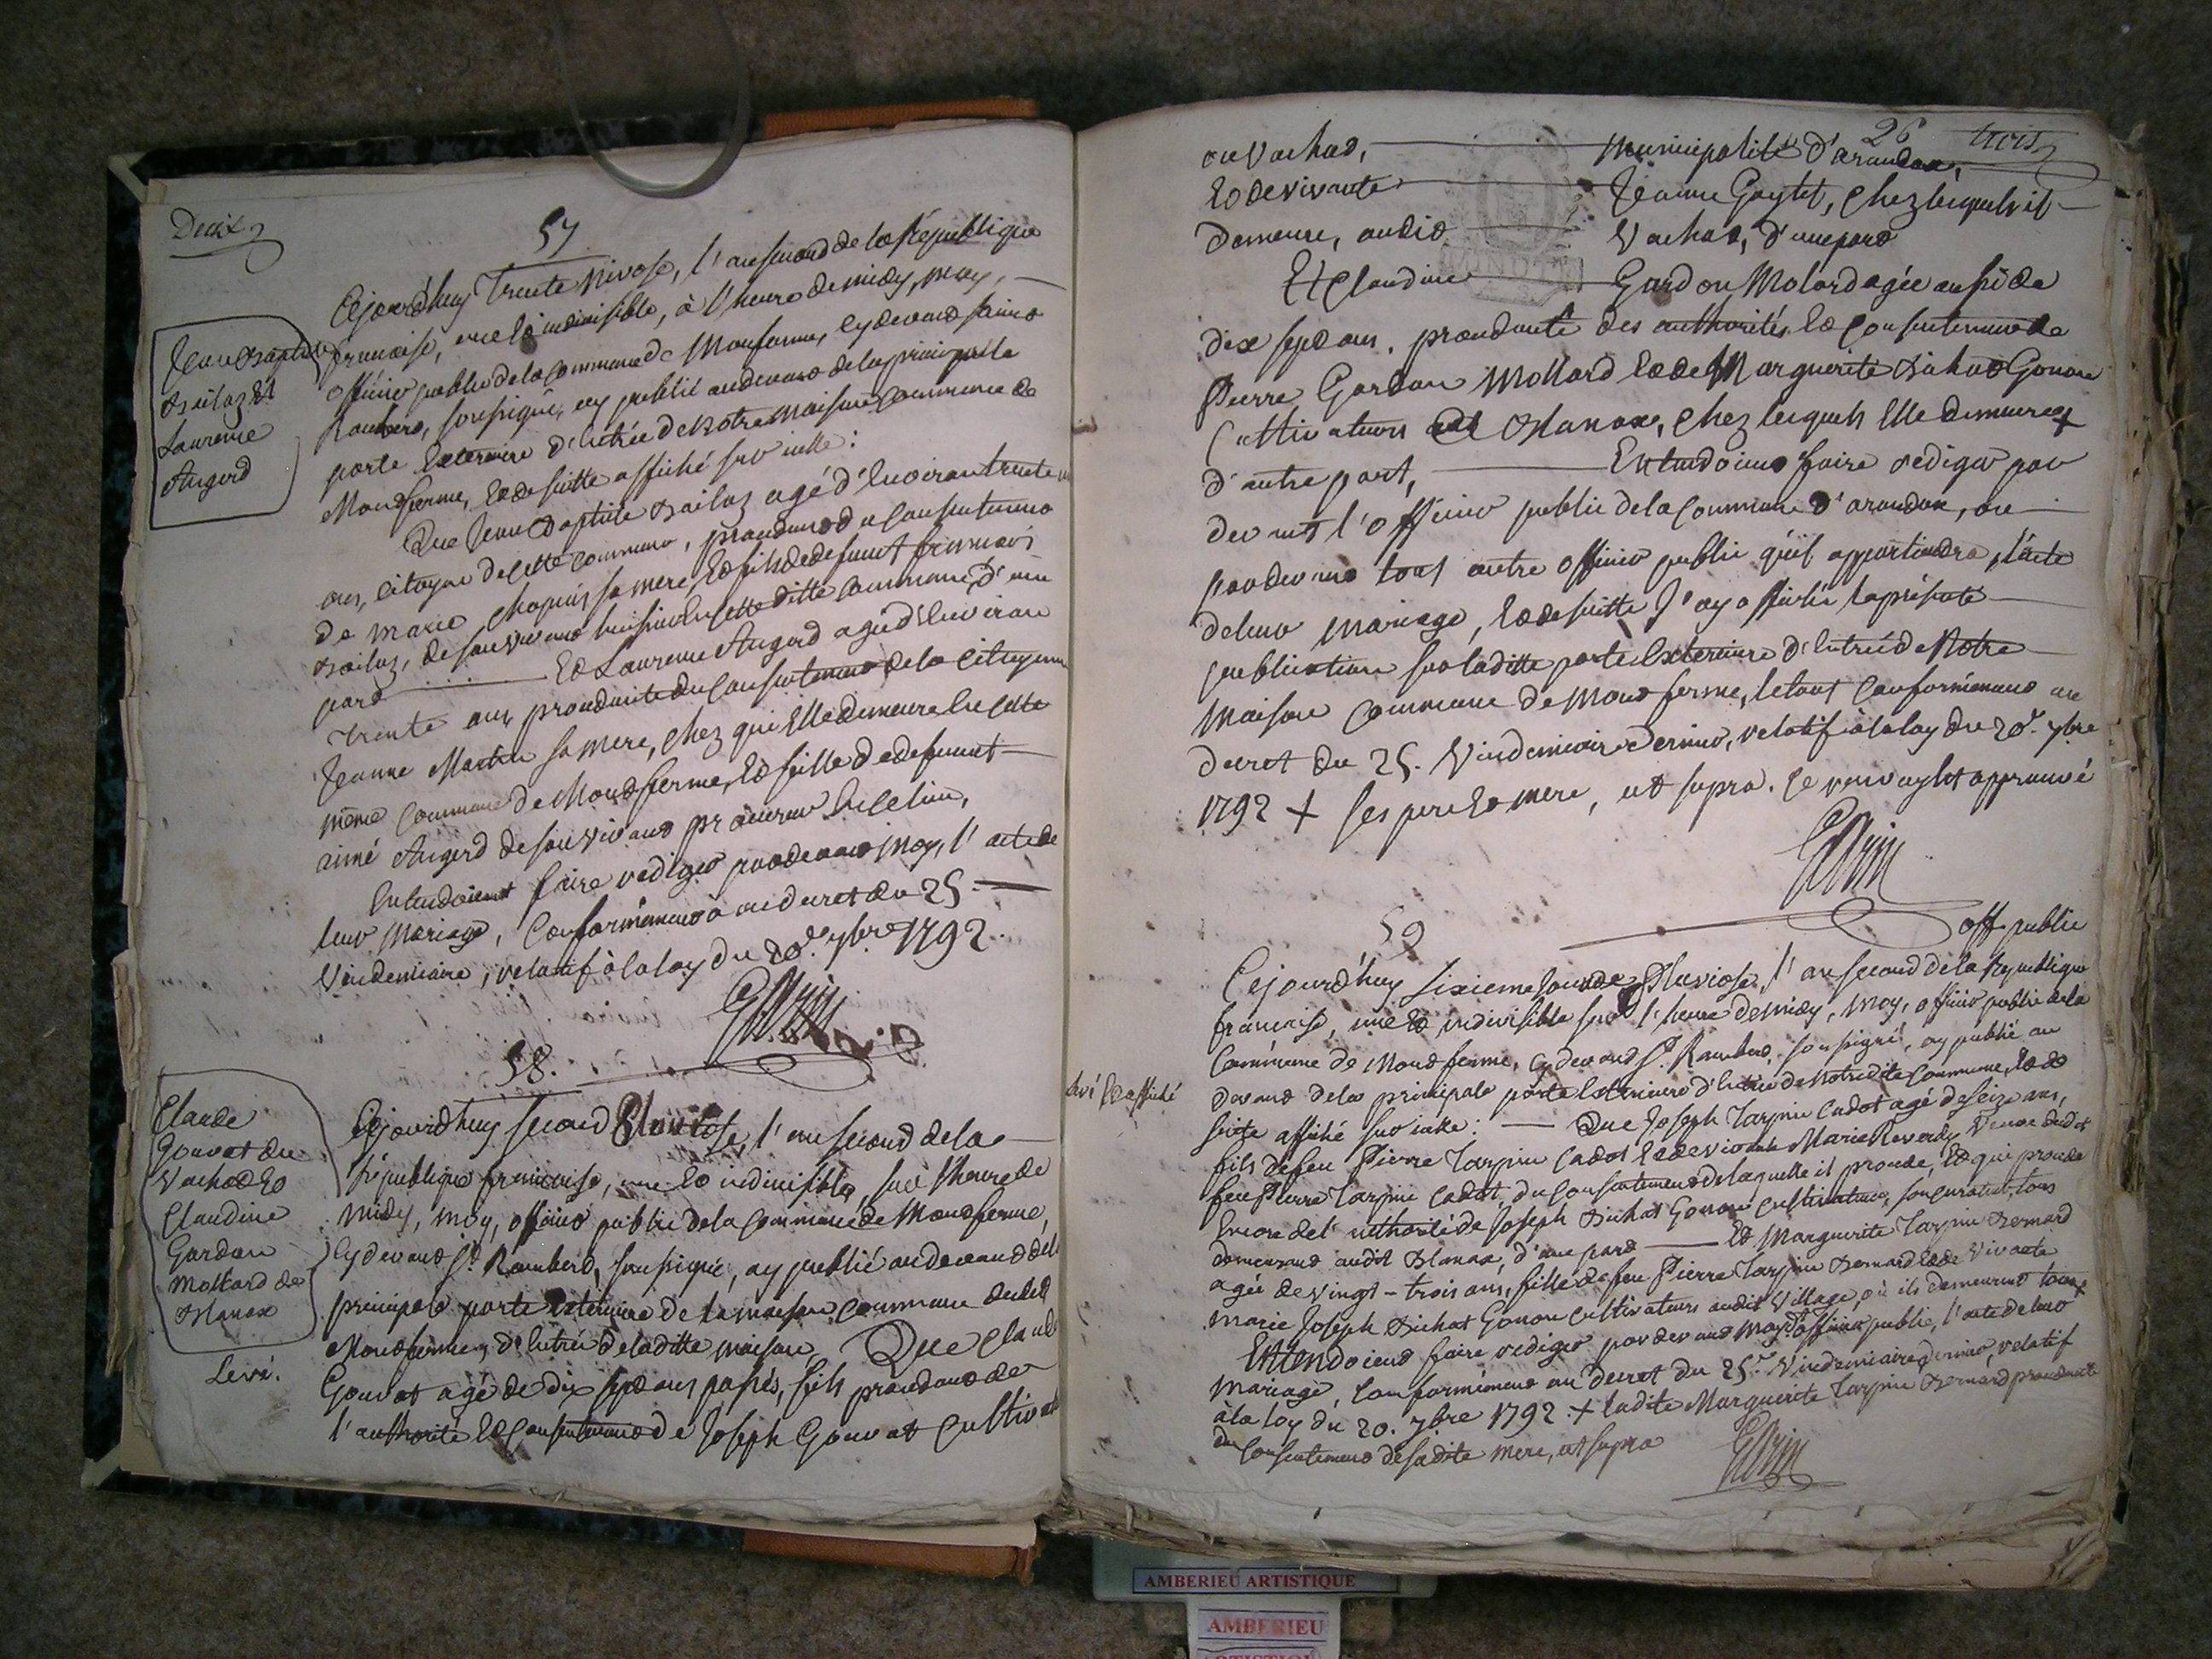 Deux
57
Cejourd'huy trente Nivose, l'an second de la République
francaise, une Et indivisible, à l'heure de midy, moy,
officier public de la commune de Montferme, cydevant saint
Rambert, soussigné, ay publié audevant de la principale
porte Exterieure d'Entrée de Notre maison commune de
Montferme, Et de suitte affiché sur icelle :
Jean Baptiste
Bailaz Et
Laurence
Augerd
Que Jean Baptiste Bailaz agé d'Environ trente
ans, citoyen de cette commune, procedant du consentement
de marie Chapuis sa mere, Et fils de defunt francois
Bailaz, de son vivant huissier En cette ditte commune, d'une
part Et Laurence Augerd agée d'Environ
trente ans, procedante du consentement de la Citoyenne
Jeanne Martin sa mere, chez qui Elle demeure En cette
même commune de Montferme, Et fille de defunt
aimé Augerd de son vivant procureur En ce lieu,
Entendoient faire rediger pardevant moy, l'acte de
leur mariage, Conformément au decret du 25.
Vindemiaire, relatif à la loy du 20.e 7bre 1792.
58.
Claude
Gouvat du
Vachat Et
Claudine
Gardon
Mollard de
Blanax
Levé.
Cejourd'huy second Pluviose, l'an second de la
République francaise, une Et indivisible, sur l'heure de
midy, moy, officier public de la commune de Montferme,
cydevant St. Rambert, soussigné, ay publié audevant de la
principale porte Exterieure de la maison commune dudit
Montferme, d'Entrée de laditte maison, Que Claude
Gouvat agé de dix sept ans passés, fils procedant de
l'authorité Et consentement de Joseph Gouvat cultivat
26 trois
au Vachat, municipalité d'arandax,
Et de vivante Jeanne Goytet, chez lesquels il
demeure, audit Vachat, d'une part
Et Claudine Gardon Molard agée aussi de
dix sept ans, procedante des authorités Et consentement de
Pierre Gardon Mollard Et de Marguerite Bichat Gonon
Cultivateurs à Blanax, chez lesquels Elle demeure +
d'autre part, Entendoient faire rediger par
devant l'officier public de la commune d'arandax, ou
pardevant tout autre officier public qu'il appartiendra, l'acte
de leur mariage, Et de suitte J'ay affiché la présente
publication sur laditte porte Exterieure d'Entrée de Notre
maison commune de Montferme, le tout conformément au
decret du 25. Vindemiaire dernier, relatif à la loy du 20.e 7bre
1792 + ses pere Et mere, ut supra. le renvoy Est approuvé
off. public
59
levé Et affiché
Cejourd'huy sixieme jour de Pluviose, l'an second de la République
francaise, une Et indivisible sur l'heure de midy, moy, officier public de la
Commune de Montferme, cydevant St. Rambert, soussigné, ay publié au
devant de la principale porte Exterieure d'Entrée de Notredite commune, Et de
suite affiché sur icelle : Que Joseph Tarpin Cadot agé de seize ans,
fils de feu Pierre Tarpin Cadot Et de vivante Marie Reverdy veuve dudit
feu Pierre Tarpin Cadot, du consentement de laquelle il procede, Et qui procede
Encore de l'authorité de Joseph Bichat Gonon cultivateur, son curateur, tous
demeurant audit Blanax, d'une part Et Marguerite Tarpin Bernard
agée de vingt-trois ans, fille de feu Pierre Tarpin Bernard Et de Vivante
marie Joseph Bichat Gonon cultivateurs audit village, où ils demeurent tous +
Entendoient faire rediger pardevant moydt officier public, l'acte de leur
mariage, Conformément au decret du 25.e Vindemiaire dernier, relatif
à la loy du 20. 7bre 1792. + ladite Marguerite Tarpin Bernard procedante
du consentement de sadite mere, ut supra
AMBERIEU ARTISTIQUE
AMBERIEU